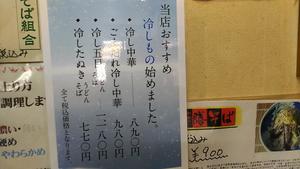 当店おすすめ
冷しもの始めました。
・冷し中華 八九〇円
・ごまだれ冷し中華 九八〇円
・冷し五目 そば うどん 一一八〇円
・冷したぬき そば うどん 七七〇円
全て税込価格となります。
そば組合
税込み
上の方
調理しま
濃い・
硬め
やわらかめ
そば
込み
¥900